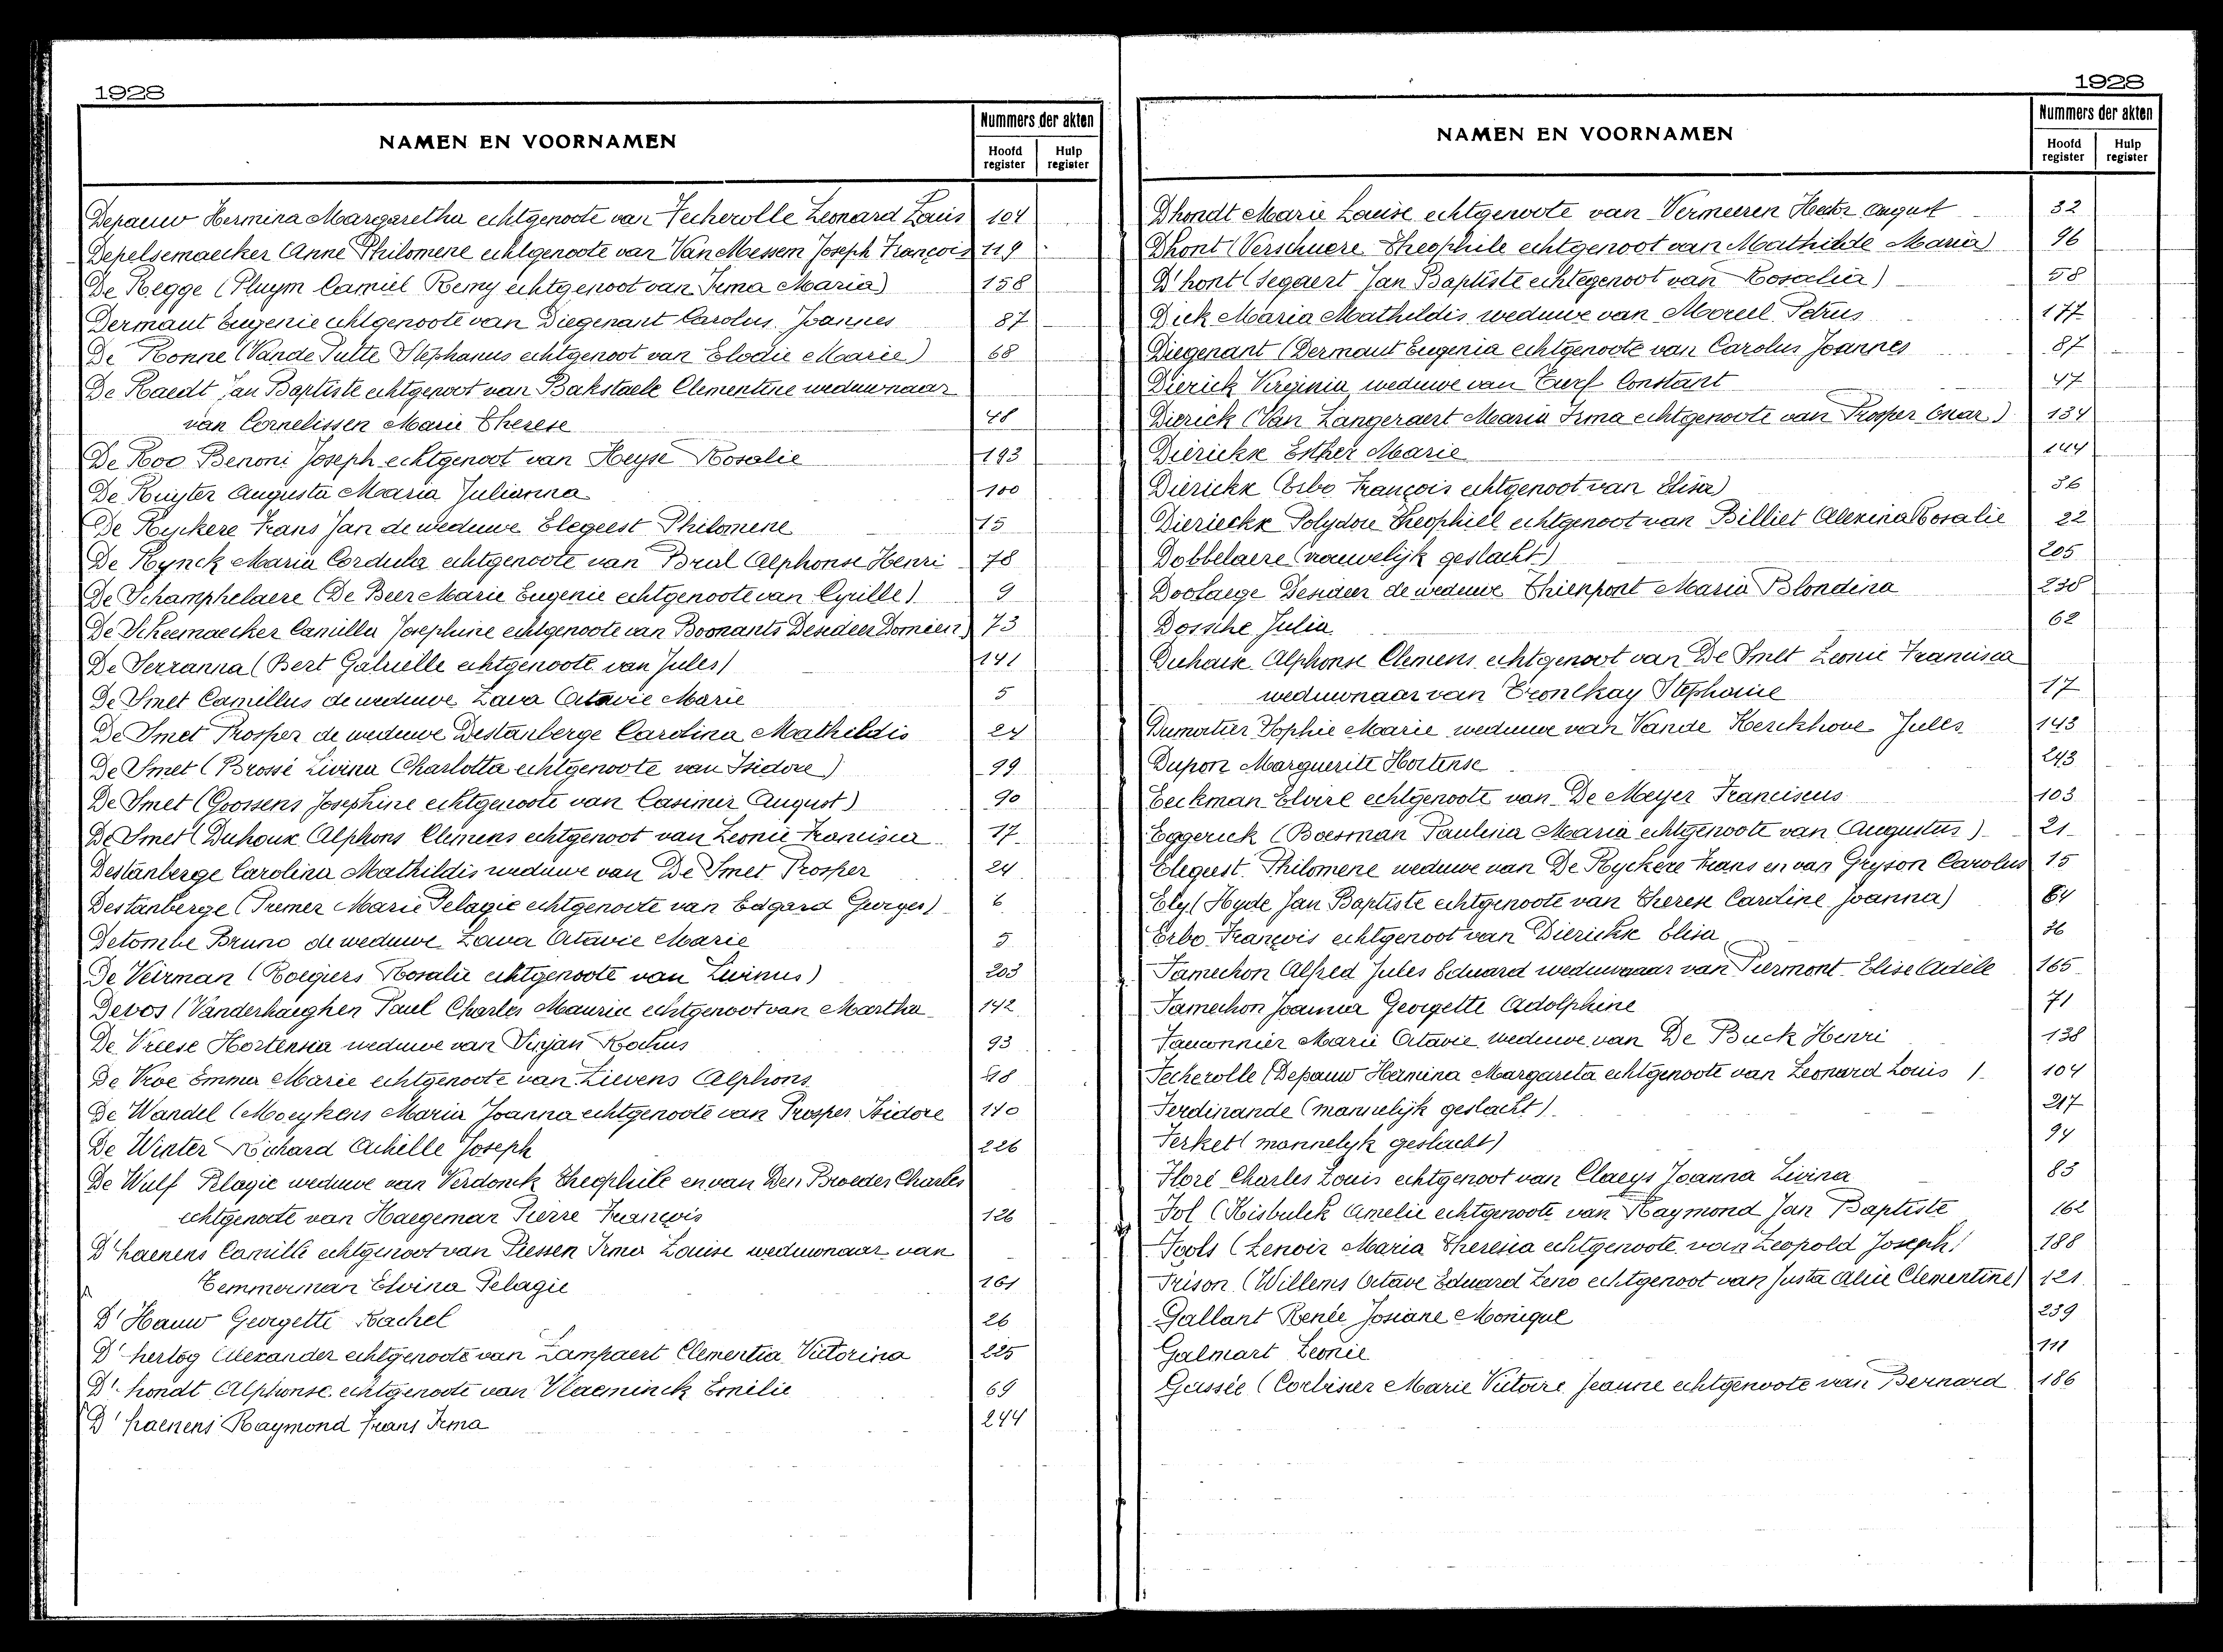 1928
NAMEN EN VOORNAMEN
Nummers der akten
Hoofd register
Hulp register
Depauw Hermina Margaretha echtgenoote van Fecherolle Leonard Louis 104
Depelsemaecker Anne Philomene echtgenoote van Van Messem Joseph François 119
De Regge (Pluym Camiel Remy echtgenoot van Irma Maria) 158
Dermaut Eugenie echtgenoote van Diegenant Carolus Joannes 87
De Ronne (Vande Putte Stephanus echtgenoot van Elodie Marie) 68
De Raedt Jan Baptiste echtgenoot van Bakstaele Clementine weduwnaar
van Cornelissen Marie Therese 48
De Roo Benoni Joseph echtgenoot van Heyse Rosalie 193
De Ruyter Augusta Maria Julianna 100
De Ryckere Frans Jan de weduwe Elegeest Philomene 15
De Rynck Maria Cordula echtgenoote van Brul Alphonse Henri 78
De Schamphelaere (De Beer Marie Eugenie echtgenoote van Cyrille) 9
De Scheemaecker Camilla Josephine echtgenoote van Boonants Desideer Domien) 73
De Serranna (Bert Gabrielle echtgenoote van Jules) 141
De Smet Camillus de weduwe Lava Octavie Marie 5
De Smet Prosper de weduwe Destanberge Carolina Mathildis 24
De Smet (Brossé Livina Charlotta echtgenoote van Isidore) 99
De Smet (Goossens Josephine echtgenoote van Casimir August) 90
De Smet (Duhoux Alphons Clemens echtgenoot van Leonie Francisca 17
Destanberge Carolina Mathildis weduwe van De Smet Prosper 24
Destanberge (Premer Marie Pelagie echtgenoote van Edgard Georges) 6
Detombe Bruno de weduwe Lava Octavie Marie 5
De Veirman (Roegiers Rosalie echtgenoote van Livinus) 203
Devos (Vanderhaeghen Paul Charles Maurice echtgenoot van Martha 142
De Vreese Hortensia weduwe van Sirjan Rochus 93
De Vroe Emma Marie echtgenoote van Lievens Alphons 98
De Wandel (Moeykens Maria Joanna echtgenoote van Prosper Isidore 110
De Winter Richard Achille Joseph 226
De Wulf Pelagie weduwe van Verdonck Theophile en van Den Broeder Charles
echtgenoote van Haegeman Pierre François 126
D'haenens Camille echtgenoot van Piessen Irma Louise weduwnaar van
Temmerman Elvina Pelagie 161
D'Hauw Georgette Rachel 26
D'hertog Alexander echtgenoote van Lampaert Clementia Victorina 225
D'hondt Alphonse echtgenoote van Vlaeminck Emilie 69
D'haenens Raymond Frans Irma 244
1928
NAMEN EN VOORNAMEN
Nummers der akten
Hoofd register
Hulp register
Dhondt Marie Louise echtgenoote van Vermeeren Hector August 32
Dhont (Verschuere Theophile echtgenoot van Mathilde Maria) 96
D'hont (Segaert Jan Baptiste echtegenoot van Rosalia) 58
Dick Maria Mathildis weduwe van Moreel Petrus 177
Diegenant (Dermaut Eugenia echtgenoote van Carolus Joannes 87
Dierick Virginia weduwe van Turf Constant 47
Dierick (Van Langeraert Maria Irma echtgenoote van Prosper Omar) 134
Dierickx Esther Marie 144
Dierickx (Erbo François echtgenoot van Elisa) 36
Dierieckx Polydore Theophiel echtgenoot van Billiet Alexina Rosalie 22
Dobbelaere (vrouwelijk geslacht) 205
Doolaege Desideer de weduwe Thienpont Maria Blondina 238
Dossche Julia 62
Duhoux Alphonse Clemens echtgenoot van De Smet Leonie Francisca
weduwnaar van Tronckay Stephanie 17
Dumortier Sophie Marie weduwe van Vande Kerckhove Jules 143
Dupon Marguerite Hortense 243
Eeckman Elvire echtgenoote van De Meyer Franciscus 103
Eggerick (Boesman Paulina Maria echtgenoote van Augustus) 21
Elegeest Philomene weduwe van De Ryckere Frans en van Gryson Carolus 15
Ely (Hyde Jan Baptiste echtgenoote van Therese Caroline Joanna) 64
Erbo François echtgenoot van Dierickx Elisa 36
Famechon Alfred Jules Eduard weduwnaar van Piermont Elise Adèle 165
Famechon Joanna Georgette Adolphine 71
Fauconnier Marie Octavie weduwe van De Buck Henri 138
Fecherolle (Depauw Hermina Margareta echtgenoote van Leonard Louis ) 104
Ferdinande (mannelijk geslacht) 217
Ferket (mannelijk geslacht) 94
Floré Charles Louis echtgenoot van Claeys Joanna Livina 83
Fol (Kisbulck Amelie echtgenoote van Raymond Jan Baptiste 162
Fools (Lenoir Maria Theresia echtgenoote van Leopold Joseph) 188
Frison (Willems Octave Eduard Zeno echtgenoot van Justa Alice Clementine) 121
Gallant Renée Josiane Monique 239
Galmart Leonie 111
Gassée (Corbisier Marie Victoire Jeanne echtgenoote van Bernard 186